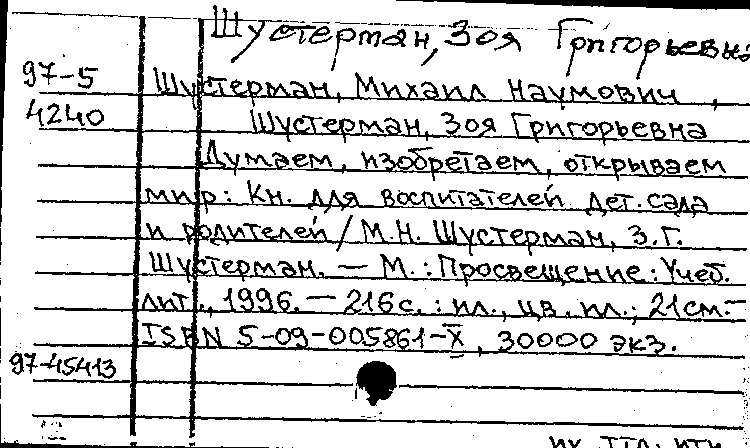 Шустерман, Зоя Григорьевна
97-5 Шустерман, Михаил Наумович,
4240 Шустерман, Зоя Григорьевна
Думаем, изобретаем, открываем
мир: Кн. для воспитателей дет. сада
и родителей / М.Н. Шустерман, З.Г.
Шустерман. — М.: Просвещение: Учеб.
лит., 1996. — 216 с.: ил., цв. ил.; 21 см. —
ISBN 5-09-005861-X, 30000 экз.
97-45413